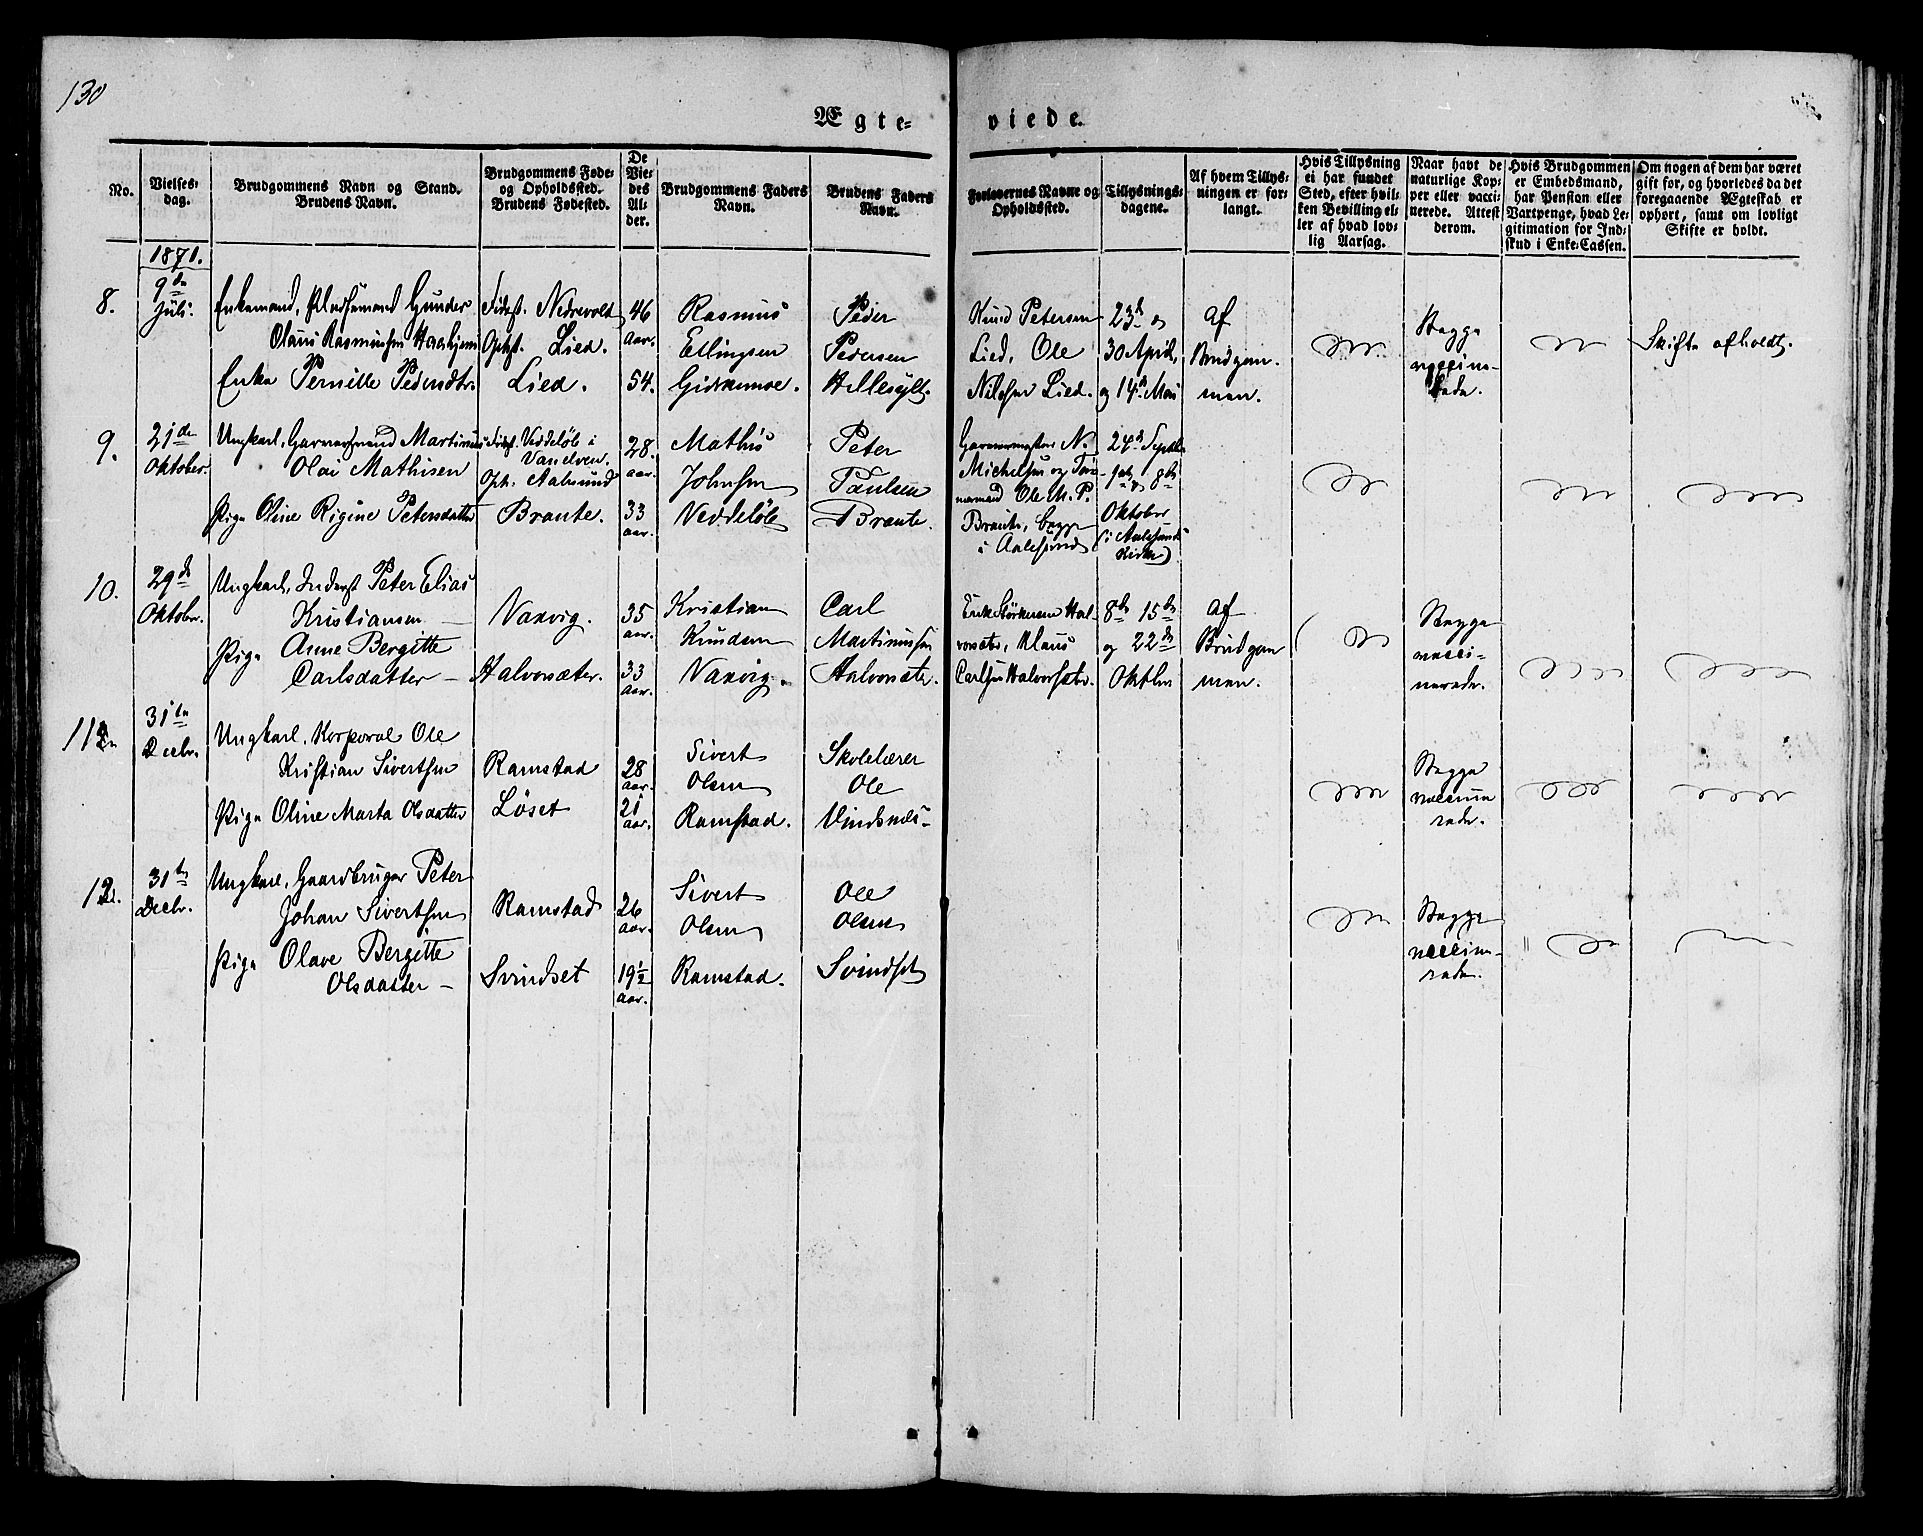 130
Ægte-
viede.
No.
Vielses-
dag.
Brudgommens Navn og Stand.
Brudens Navn.
Brudgommens Føde-
og Opholdssted.
Brudens Fødested.
De
Vie-
des
Al-
der.
Brudgommens Faders
Navn.
Brudens Faders
Navn.
Forlovernes Navne og
Opholdssted.
Tillysnings-
dagene.
Af hvem Tillys-
ningen er for-
langt.
Hvis Tillysning
ei har fundet
Sted, efter hvil-
ken Bevilling el-
ler af hvad lov-
lig Aarsag.
Naar havt de
naturlige Kop-
per eller vacci-
nerede. Attest
derom.
Hvis Brudgommen
er Embedsmand,
har Pension eller
Vartpenge, hvad Le-
gitimation for Ind-
skud i Enke-Cassen.
Om nogen af dem har været
gift før, og hvorledes da det
foregaaende Ægteskab er
ophørt, samt om lovligt
Skifte er holdt.
1871.
8.
9de
Juli.
Enkemand, Gunder
Olaus Rasmussen
Enke Pernille Pedersdtr.
Fødest. Nedrevold
Opht. Lied.
Lied.
46
aar.
54.
Rasmus
Erlingsen
Giskemoe.
Peder
Pedersen
Hellesylt.
Knud Petersen
Lied, Ole
Nilssen Lied.
23d og
30 April,
og 14de Mai
Af
Brudgom-
men.
Begge
vaccine-
rede.
Skifte afholdt.
9.
21de
Oktober.
Ungkarl, Garversvend Martinus
Olai Mathisen
Pige Oline Rigine Petersdatter
Fødest. Veddeløb i
Vanelven.
Oph. Aalesund
Brante.
28.
aar.
33
aar.
Mathis
Johnsen
Veddeløb
Peter
Paulsen
Brante.
Garvermester N.
Michelsen og
Ole M. P.
Brante, begge
i Aalesund
24de Septbr
1ste og 8de
Oktober
(i Aalesunds
Kirke)
10.
29de
Oktober.
Ungkarl, Inderst Peter Elias
Kristiansen —
Pige Anne Bergitte
Carlsdatter —
Vaxvig.
Halvorsæter.
35
aar.
33
aar.
Kristian
Knudsen
Vaxvig.
Carl
Martinussen
Halvorsæter.
Hal-
vorsæter, Klaus
Carlsen Halvorsæter.
8de 15de
og 22de
Oktbr
Af
Brudgom
men.
Begge
vacci-
nerede.
11.
31te
Decbr.
Ungkarl, Korporal Ole
Kristian Sivertsen
Pige Oline Marta Olsdatter
Ramstad
Løset
28
aar.
21
aar.
Sivert
Olsen
Ramstad.
Skolelærer
Ole
Vindsnes
Begge
vaccine
rede.
12.
31te
Decbr.
Ungkarl, Gaardbruger Peter
Johan Sivertsen
Pige Olave Bergitte
Olsdatter —
Ramstad
Svindset
26
aar.
19½
aar.
Sivert
Olsen
Ramstad.
Ole
Olsen
Svindset
Begge
vaccine-
rede.